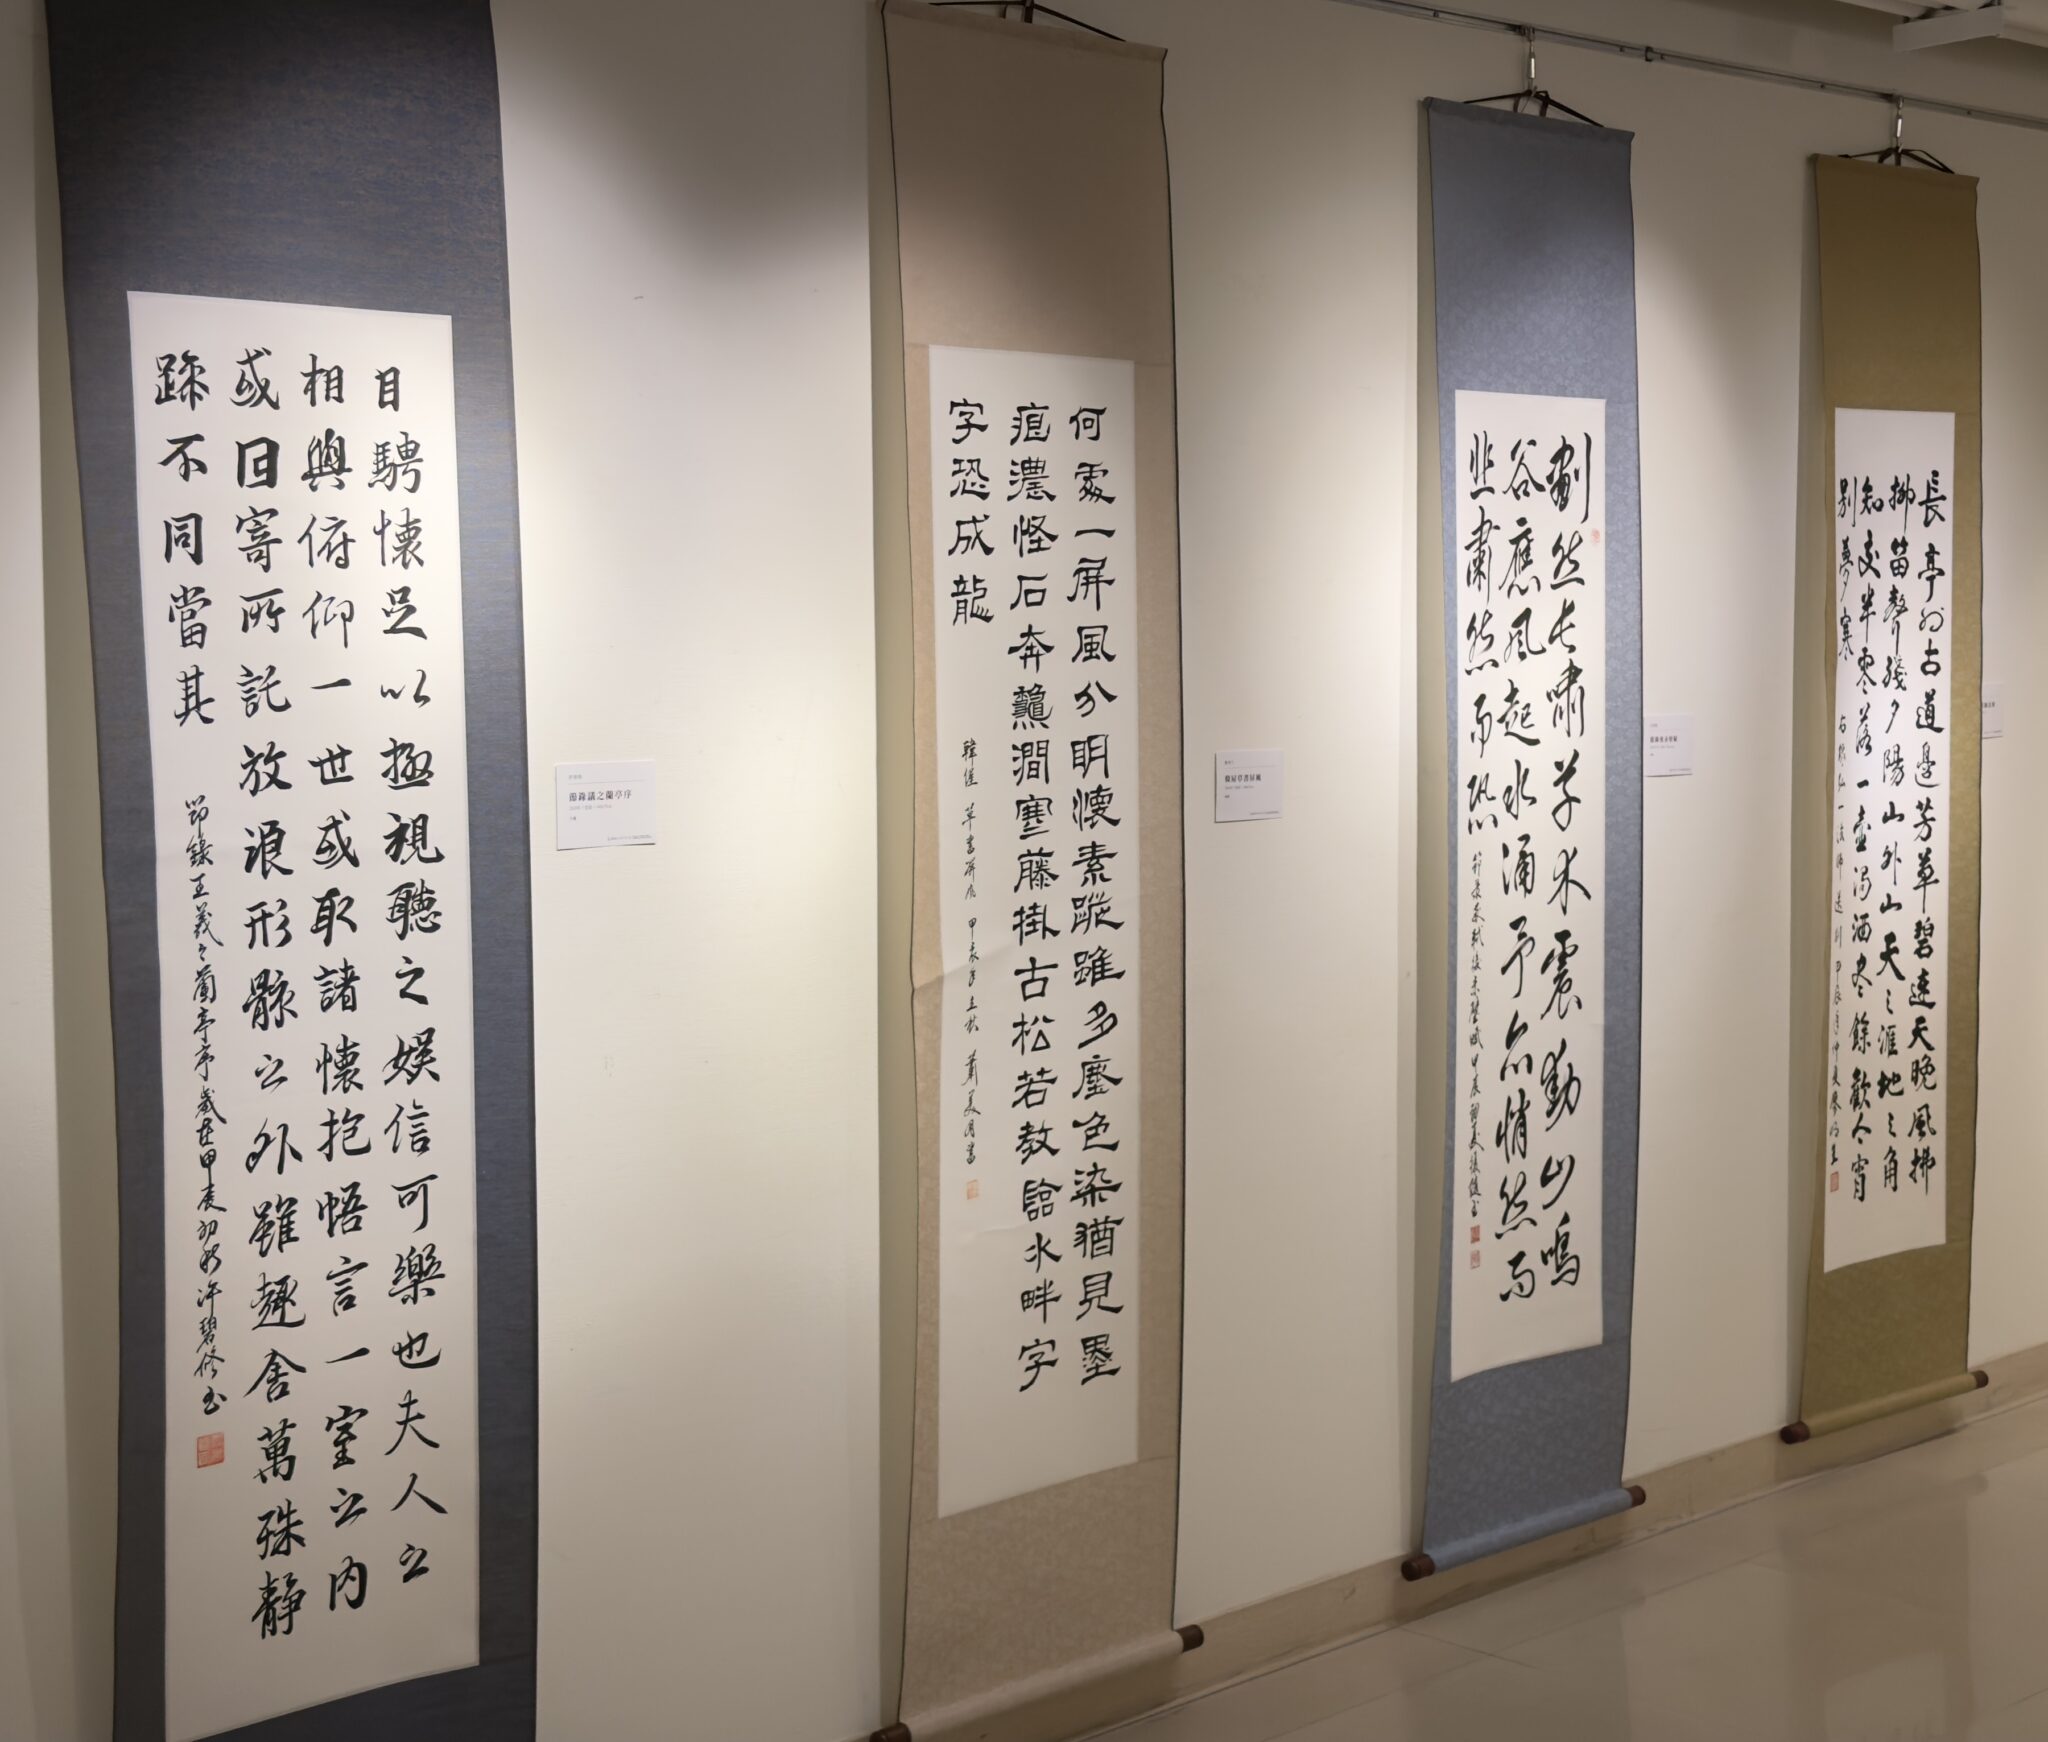 目騁懷足以極視聽之娛信可樂也夫人之
相與俯仰一世或取諸懷抱悟言一室之內
或因寄所託放浪形骸之外雖趣舍萬殊靜
躁不同當其
節錄王羲之蘭亭序歲在甲辰初秋許碧修書
節錄議之蘭亭序
何處一屏風分明懷素蹤雖多塵色染猶見墨
痕濃怪石奔龝澗寒藤掛古松若教臨水畔字
字恐成龍
韓偓 草書屏風 甲辰年立秋 蕭美月書
韓偓草書屏風
劃然長嘯草木震動山鳴
谷應風起水涌予亦悄然而
悲肅然而恐
節錄蘇軾後赤壁賦甲辰初夏張書
節錄後赤壁賦
長亭外古道邊芳草碧連天晚風拂
柳笛聲殘夕陽山外山天之涯地之角
知交半零落一壺濁酒盡餘歡今宵
別夢寒
右錄弘一法師送別 甲辰年仲夏廖